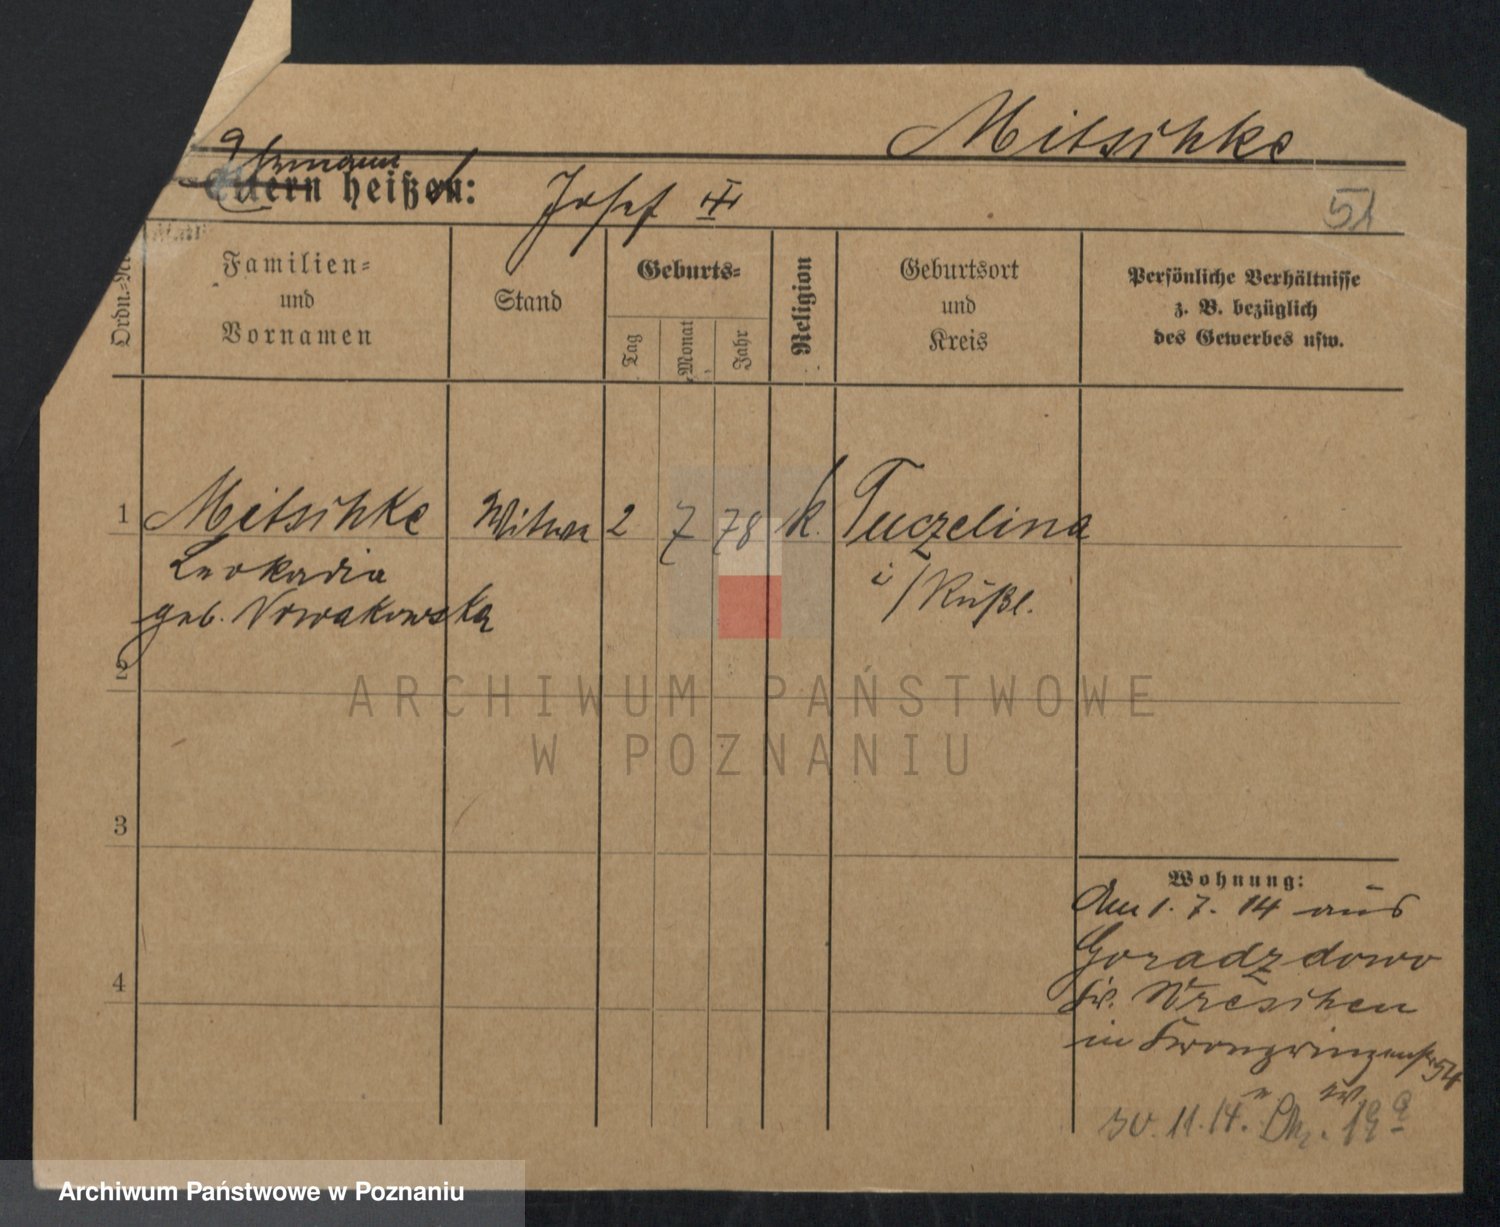 Mitschke
Ehemann
Eltern heißen: Josef III
51
Ordn.-Nr.
Familien-
und
Vornamen
Stand
Geburts-
Tag
Monat
Jahr
Religion
Geburtsort
und
Kreis
Persönliche Verhältnisse
z. B. bezüglich
des Gewerbes usw.
1 Mitschke Witwe 2 7 78 k. Tuczelina
Leokadia
i/Rußl.
geb. Nowakowska
2
ARCHIWUM PAŃSTWOWE
W POZNANIU
3
Wohnung:
Am 1. 7. 14 aus
Goradzdowo
Kr. Wreschen
4
in Kronprinzenstr 54
30. 11. 14.
Archiwum Państwowe w Poznaniu